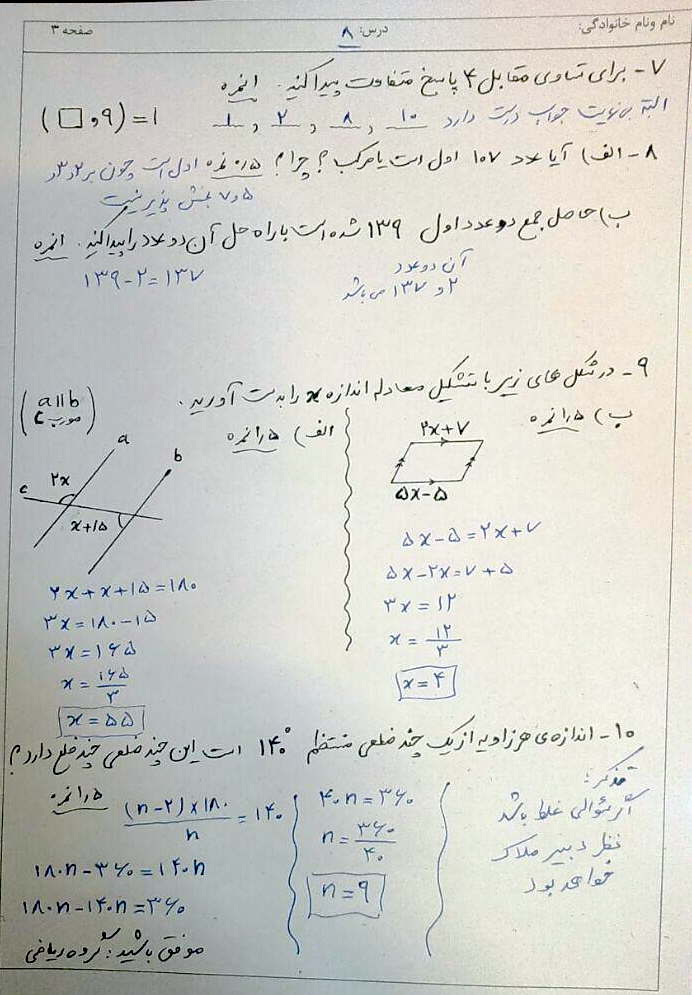 نام و نام خانوادگی: درس: ۸ صفحه ۳
۷- برای تساوی مقابل ۴ پاسخ متفاوت پیدا کنید. ۱نمره
(□,۹)=۱ ۱ , ۲ , ۸ , ۱۰ البته بی نهایت جواب درست دارد
۸- الف) آیا عدد ۱۰۷ اول است یا مرکب؟ چرا؟ ۰/۵ نمره اول است چون بر ۲و۳و
۵و۷ بخش پذیر نیست
ب) حاصل جمع دو عدد اول ۱۳۹ شده است با راه حل آن دو عدد را پیدا کنید. ۱نمره
۱۳۹-۲=۱۳۷
آن دو عدد
۲ و ۱۳۷ می باشد
۹- در شکل های زیر با تشکیل معادله اندازه x را بدست آورید.
(a||b
c مورب)
الف) ۱/۵نمره
a
b
c
۲x
x+۱۵
۲x+x+۱۵=۱۸۰
۳x=۱۸۰-۱۵
۳x=۱۶۵
x=۱۶۵/۳
x=۵۵
ب) ۱/۵نمره
۲x+۷
۵x-۵
۵x-۵=۲x+۷
۵x-۲x=۷+۵
۳x=۱۲
x=۱۲/۳
x=۴
۱۰- اندازه ی هر زاویه از یک چند ضلعی منتظم ۱۴۰° است این چند ضلعی چند ضلع دارد؟
۱/۵نمره
(n-۲)×۱۸۰/n=۱۴۰
۱۸۰n-۳۶۰=۱۴۰n
۱۸۰n-۱۴۰n=۳۶۰
۴۰n=۳۶۰
n=۳۶۰/۴۰
n=۹
تذکر:
اگر سوالی غلط باشد
نظر دبیر ملاک
خواهد بود
موفق باشید: گروه ریاضی